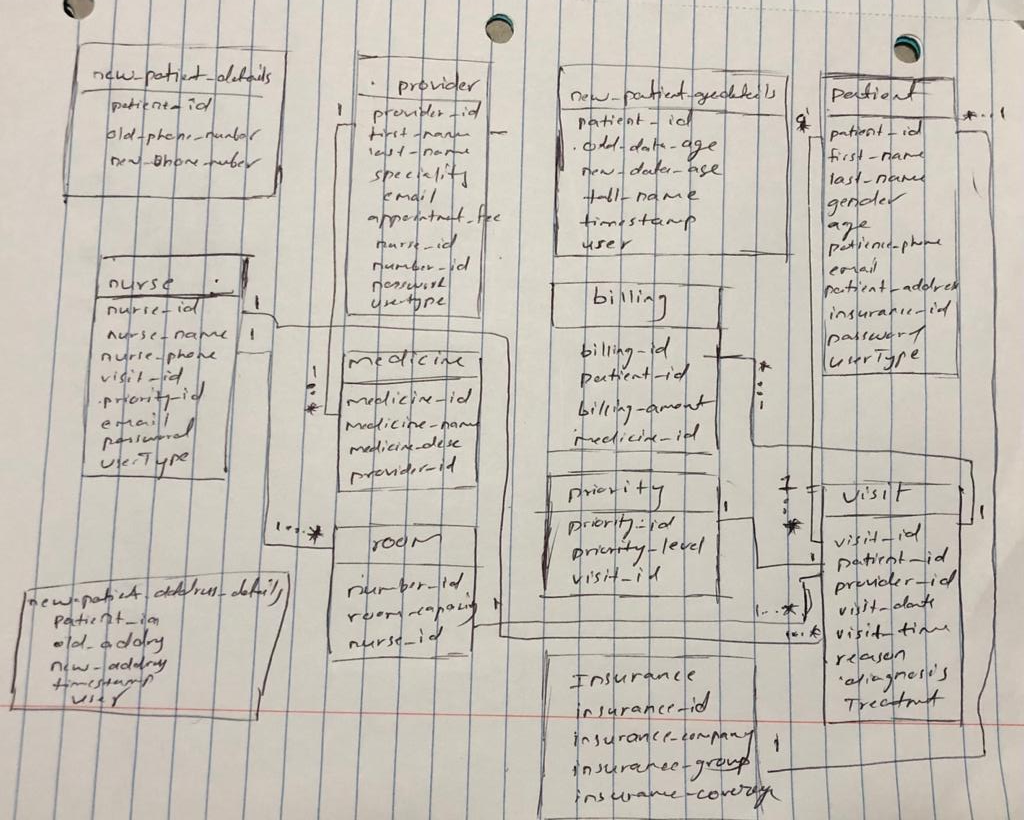 new_patient_details
patient_id
old_phone_number
new_phone_nuber
provider
provider_id
first_name
last_name
speciality
email
appointment_fee
nurse_id
number_id
password
usetype
patient_id
new_data_age
timestamp
user
patient
patient_id
first_name
last_name
gender
age
email
patient_address
insurance_id
password
userType
nurse
nurse_id
nurse_name
nurse_phone
visit_id
priority_id
email
password
userType
medicine
medicine_id
medicine_name
medicine_desc
provider_id
billing
billing_id
patient_id
billing_amont
medicine_id
priority
priority_id
priority_level
visit_id
visit
visit_id
patient_id
provider_id
visit_date
visit_time
reason
diagnosis
room
number_id
nurse_id
new_patient_address_details
old_addrs
new_addrs
timestamp
user
Insurance
insurance_id
insurance_company
insurance_group
insurance_coverage
1
1
1
1...*
1...*
1...*
1
1
1
1
*...1
*...1